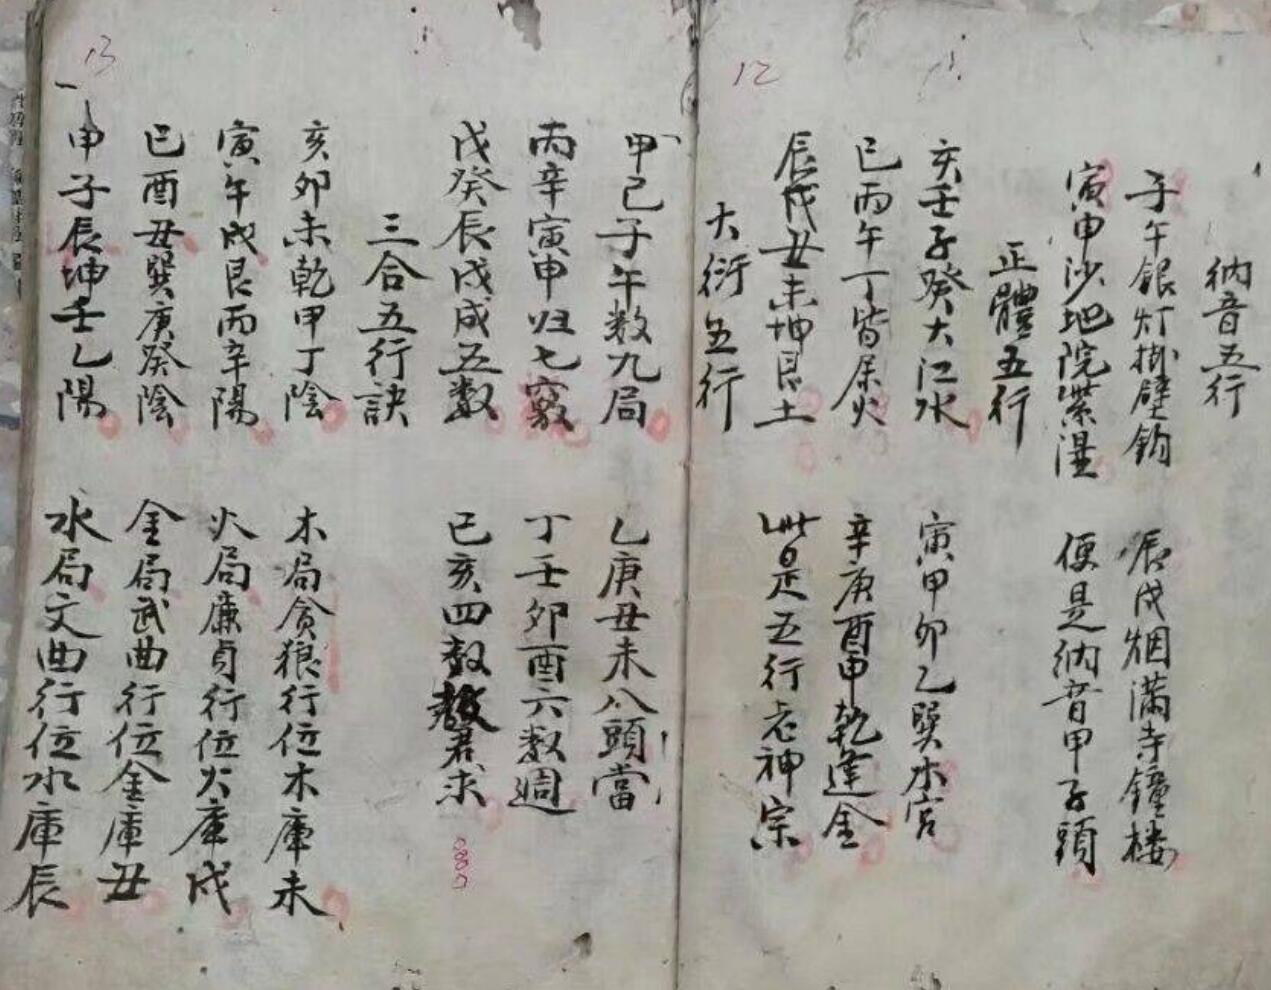 12
納音五行
子午銀灯掛壁鈎
辰戌烟滿寺鐘楼
寅申沙地院柴濕
便是納音甲子頭
正體五行
亥壬子癸大江水
寅甲卯乙巽木宮
巳丙午丁皆属火
辛庚酉申乾逢金
辰戌丑未坤艮土
此是五行老神宗
大衍五行
13
甲己子午数九局
乙庚丑未八頭當
丙辛寅申归七竅
丁壬卯酉六数週
戊癸辰戌成五数
巳亥四数君求
三合五行訣
亥卯未乾甲丁陰
木局貪狼行位木庫未
寅午戌艮丙辛陽
火局廉貞行位火庫戌
巳酉丑巽庚癸陰
金局武曲行位金庫丑
申子辰坤壬乙陽
水局文曲行位水庫辰